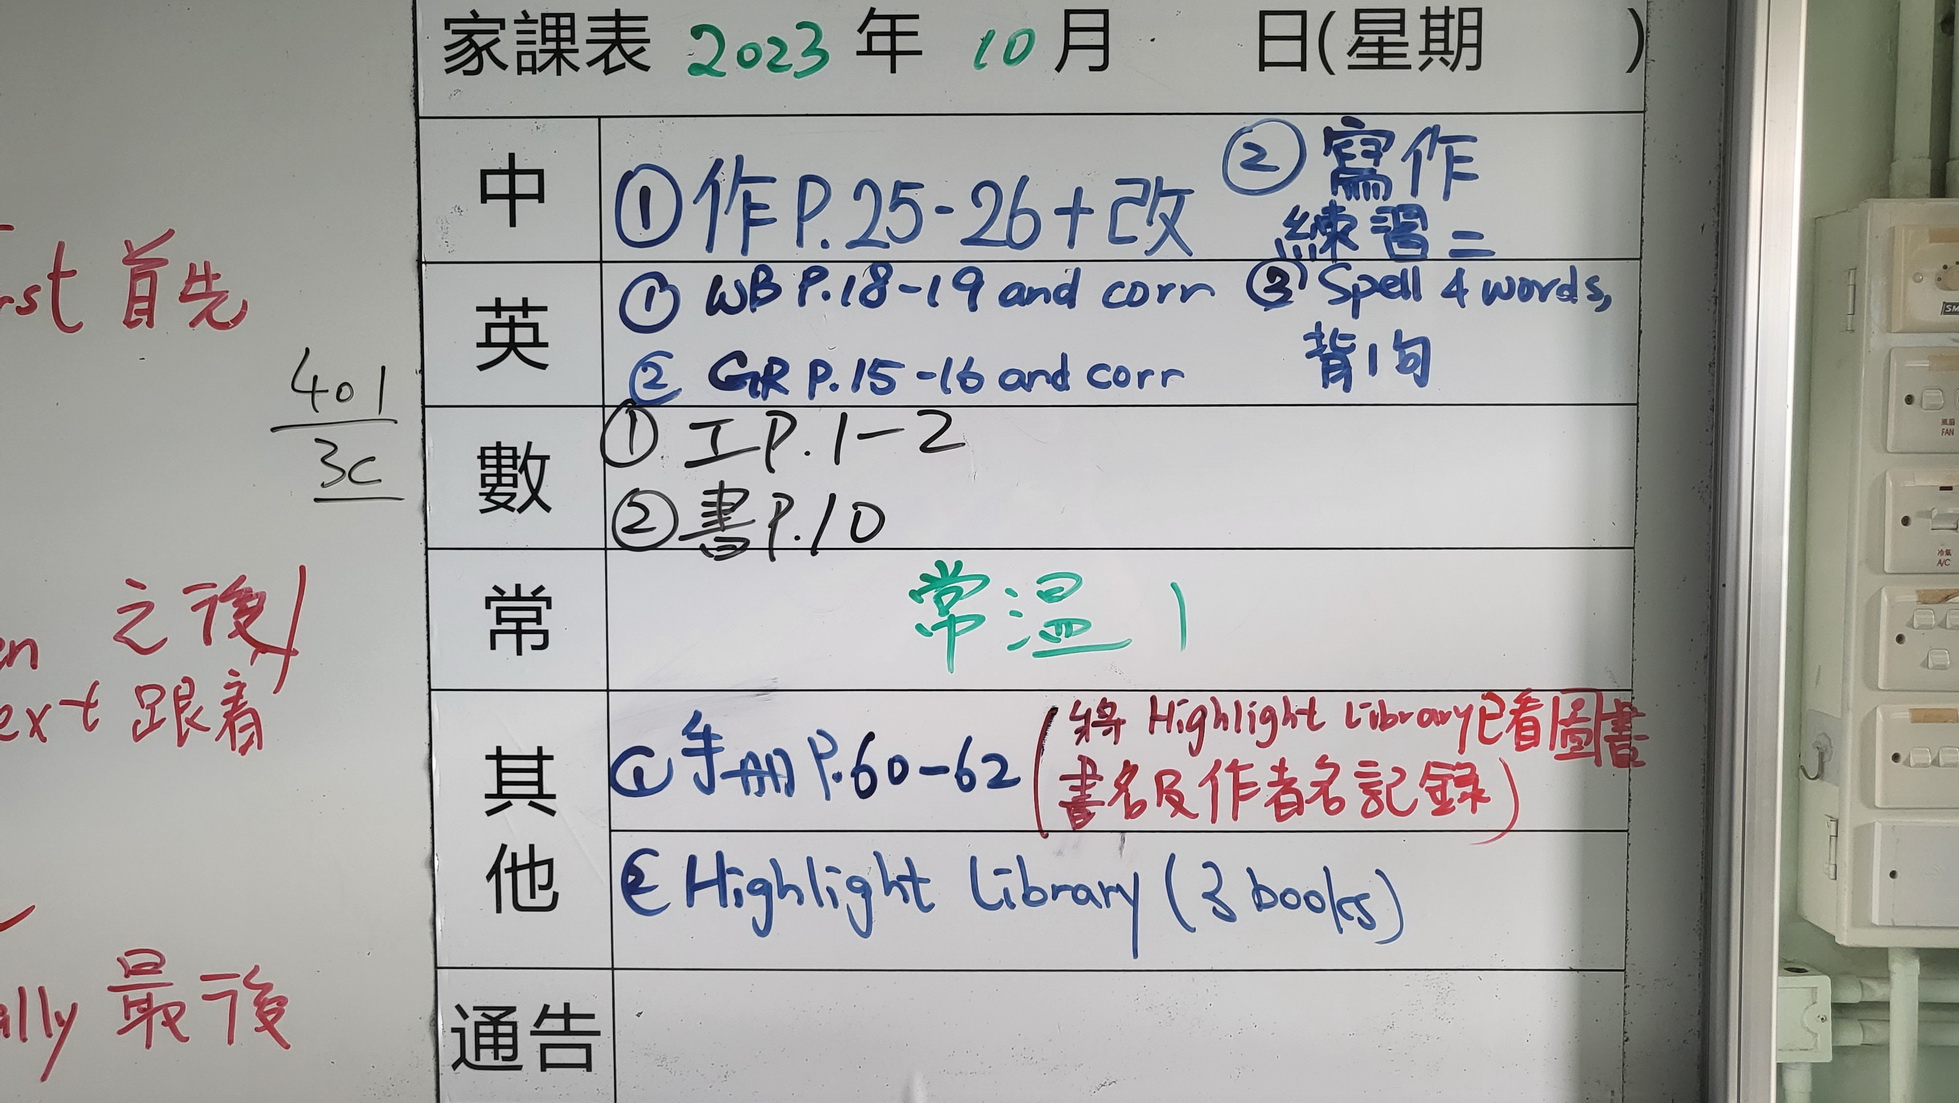 家課表 2023 年 10 月 日(星期 )
中
①作P.25-26+改
②寫作
練習二
英
① WB P.18-19 and corr
② GR P.15-16 and corr
③ Spell 4 words,
背1句
數
① 工P.1-2
②書P.10
常
常溫 1
其他
①手冊P.60-62
(將 Highlight Library已看圖書
書名及作者名記錄)
② Highlight Library (3 books)
通告
rst 首先
401
3C
en 之後/
ext 跟着
ally 最後
FAN
A/C